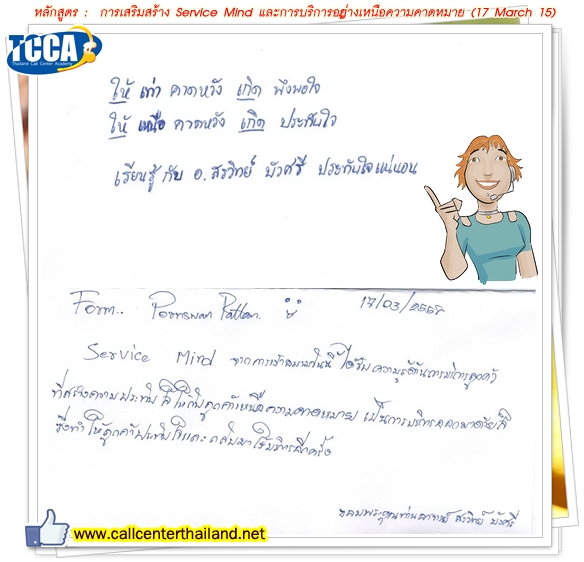 หลักสูตร : การเสริมสร้าง Service Mind และการบริการอย่างเหนือความคาดหมาย (17 March 15)
TCCA
Thailand Call Center Academy
ให้ เท่า คาดหวัง เกิด พึงพอใจ
ให้ เหนือ คาดหวัง เกิด ประทับใจ
เรียนรู้ กับ อ.สรวิทย์ บัวศรี ประทับใจแน่นอน
Form.. Pornswan 17/03/2558
Service Mind จากการเข้าอบรมวันนี้ ได้รับความรู้ด้านการบริการลูกค้า
ที่สร้างความประทับใจให้กับลูกค้าเหนือความคาดหมาย เป็นการบริการ
ซึ่งทำให้ลูกค้าประทับใจและกลับมาใช้บริการอีกครั้ง
ขอบพระคุณท่านอาจารย์ สรวิทย์ บัวศรี
www.callcenterthailand.net